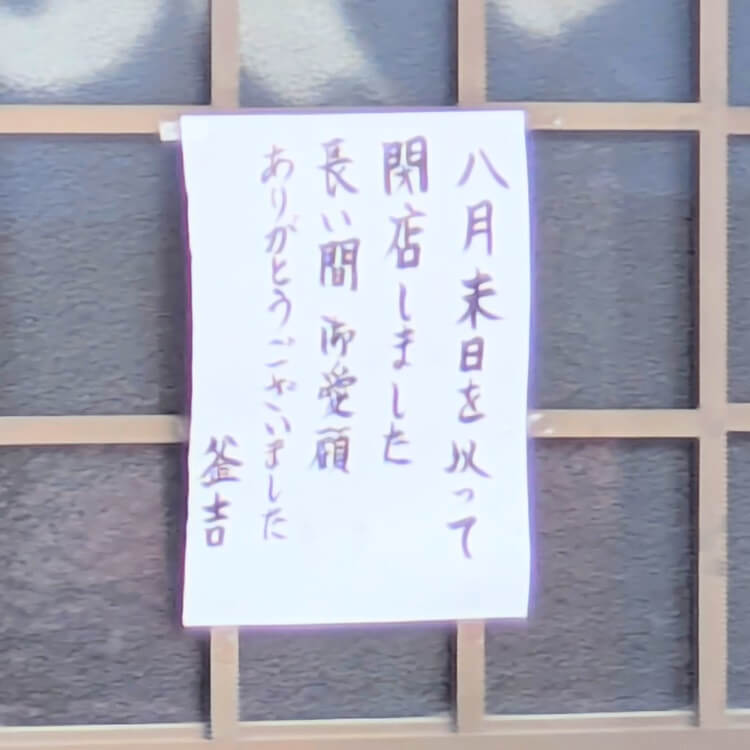 八月末日を以って
閉店しました
長い間 御愛顧
ありがとうございました
釜吉